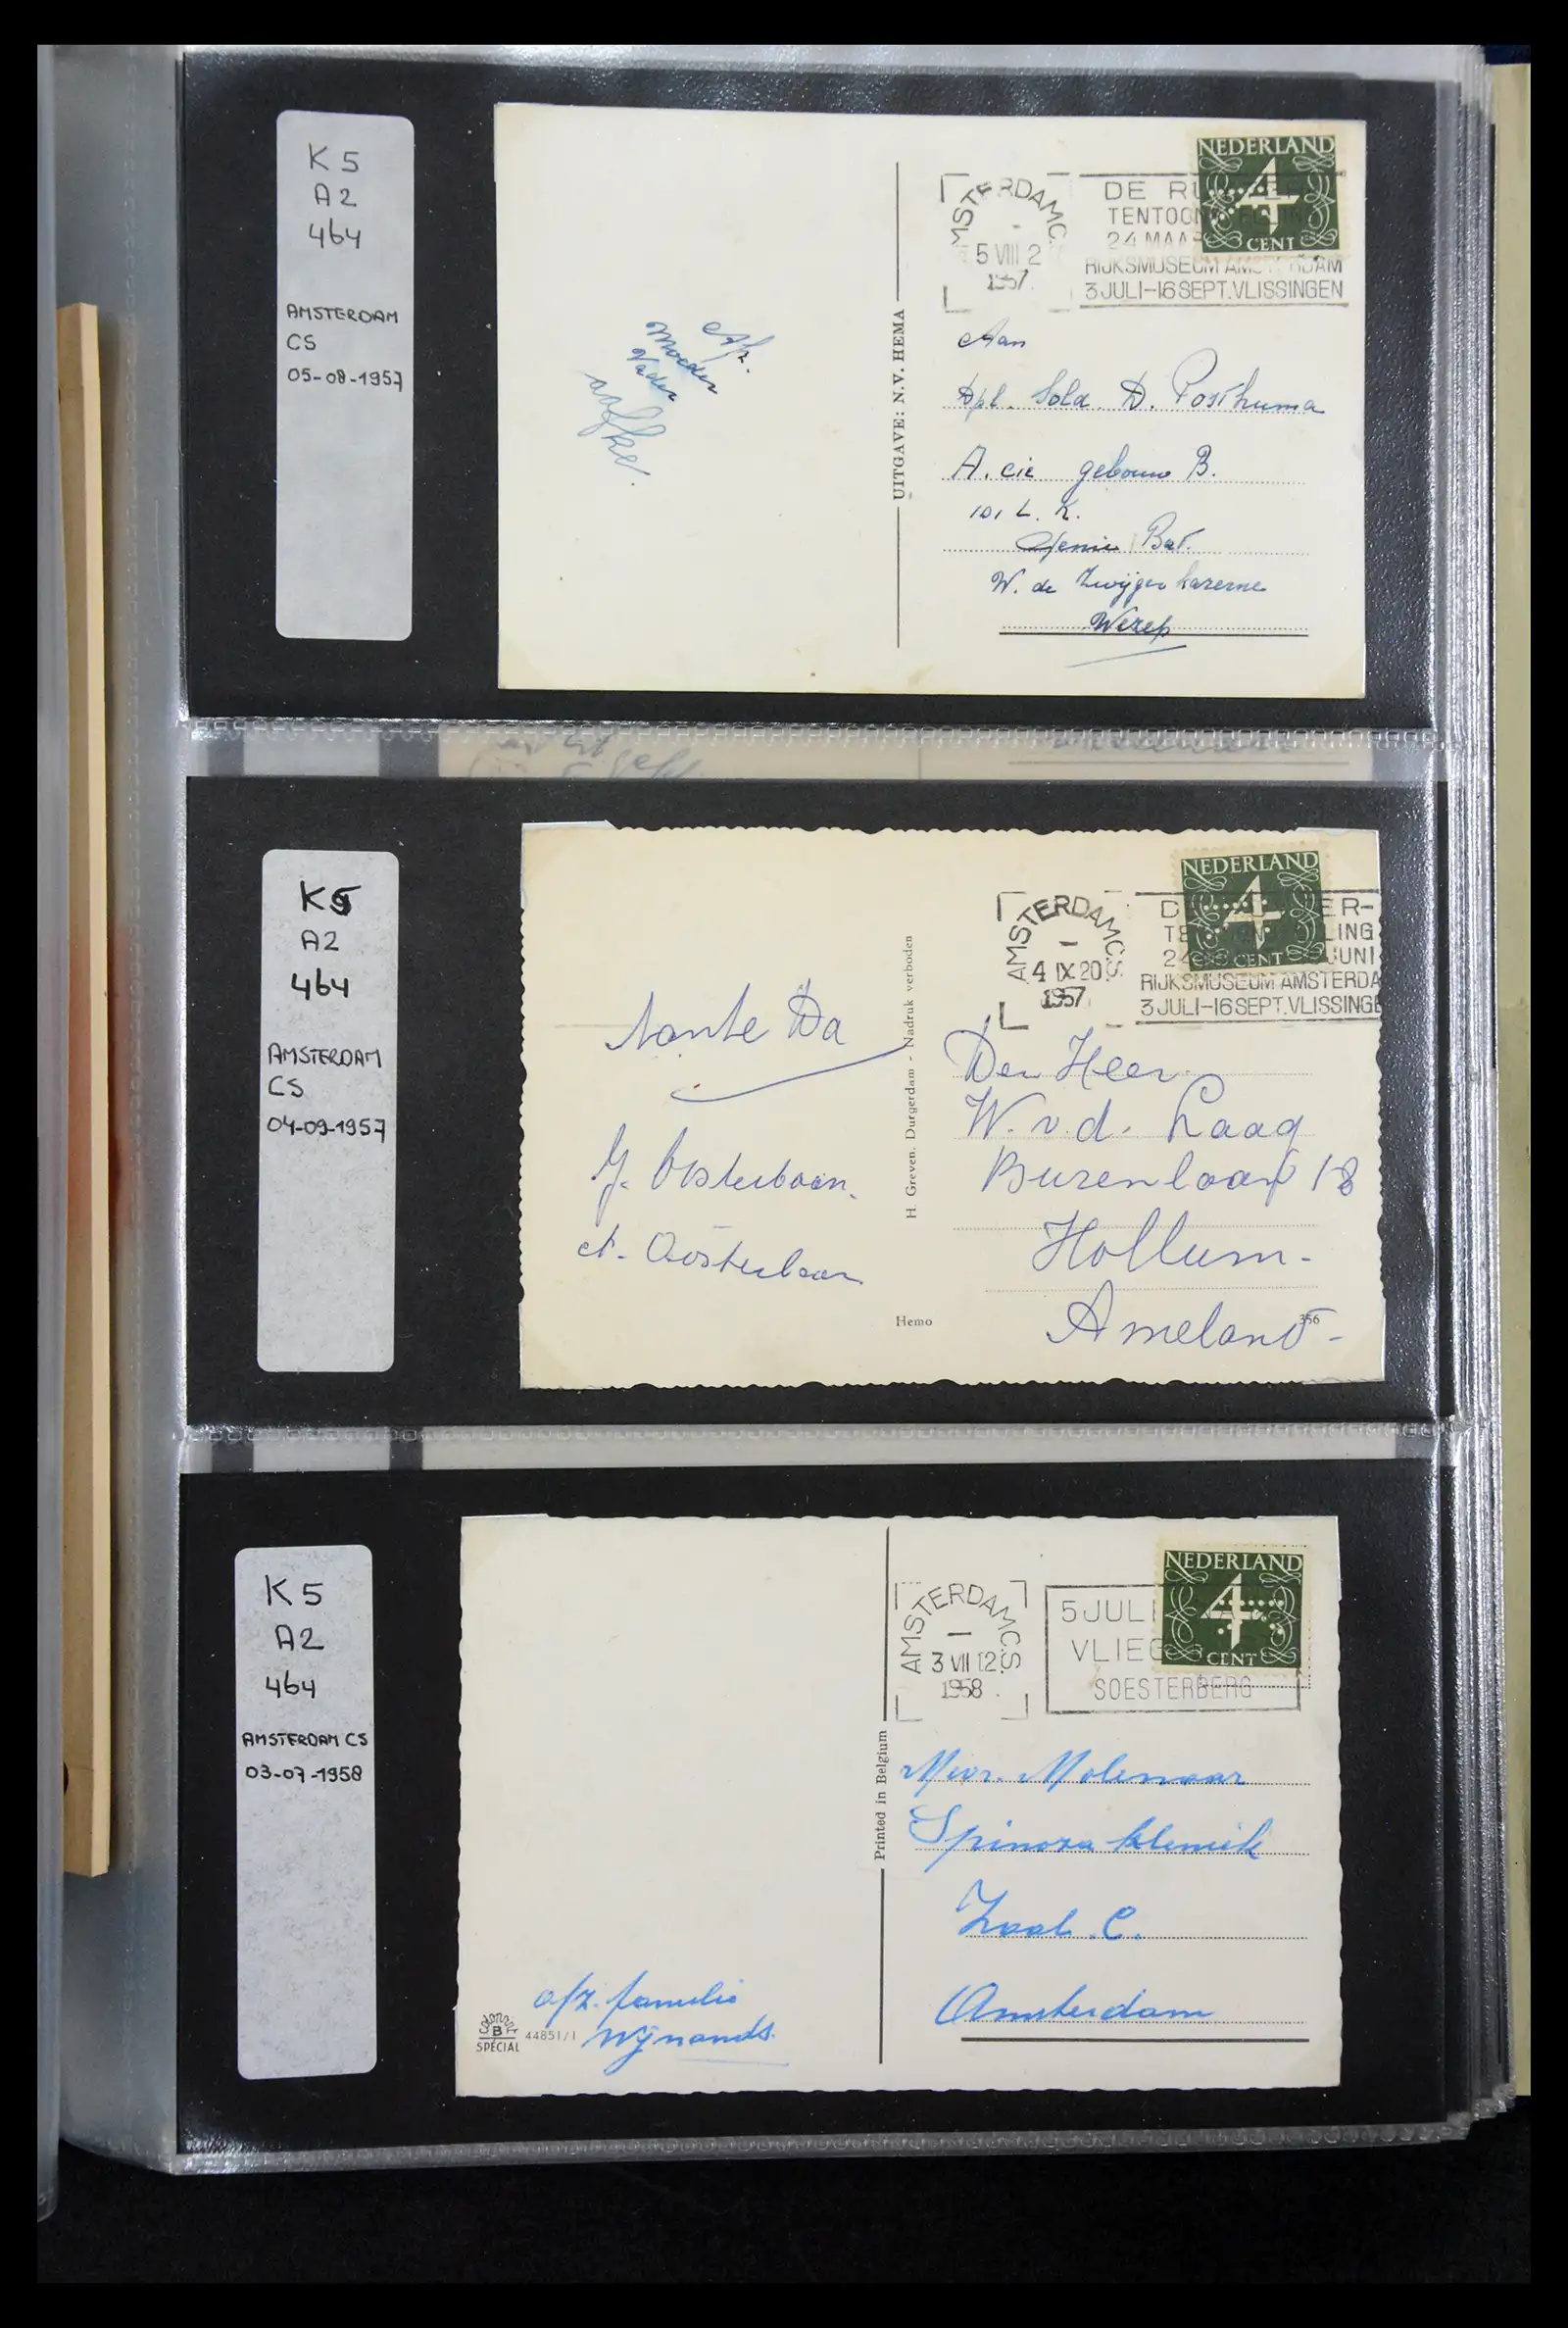 K5
A2
464
AMSTERDAM
CS
05-08-1957
NEDERLAND
4
CENT
AMSTERDAM C.
5 VIII 2
1957
DE RU
TENTOON
24 MAA
RIJKSMUSEUM AMSTERDAM
3 JULI-16 SEPT. VLISSINGEN
UITGAVE: N.V. HEMA
Afz.
Moeder
Vader
Aan
Dpl. Sold. D. Posthuma
A. cie gebouw B.
101 L. K.
Genie Bat.
W. de Zwijger kazerne
Wezep
K5
A2
464
AMSTERDAM
CS
04-09-1957
NEDERLAND
4
CENT
AMSTERDAM C.S.
4 IX 20
1957
D ER-
TE LING
24 JUNI
RIJKSMUSEUM AMSTERDA
3 JULI-16 SEPT. VLISSINGE
H. Greven. Durgerdam - Nadruk verboden
tante Da
J. Oosterbaan.
A. Oosterbaan
Den Heer
W. v. d. Laag
Burenlaan 18
Hollum-
Ameland-
Hemo
356
K5
A2
464
AMSTERDAM CS
03-07-1958
NEDERLAND
4
CENT
AMSTERDAM C.S.
3 VII 12
1958
5 JULI
VLIEG
SOESTERBERG
Printed in Belgium
Mevr. Molenaar
Spinoza kliniek
Zaal C.
Amsterdam
afz. familie
Wijnands.
Colorprint
B
SPECIAL
44851/1